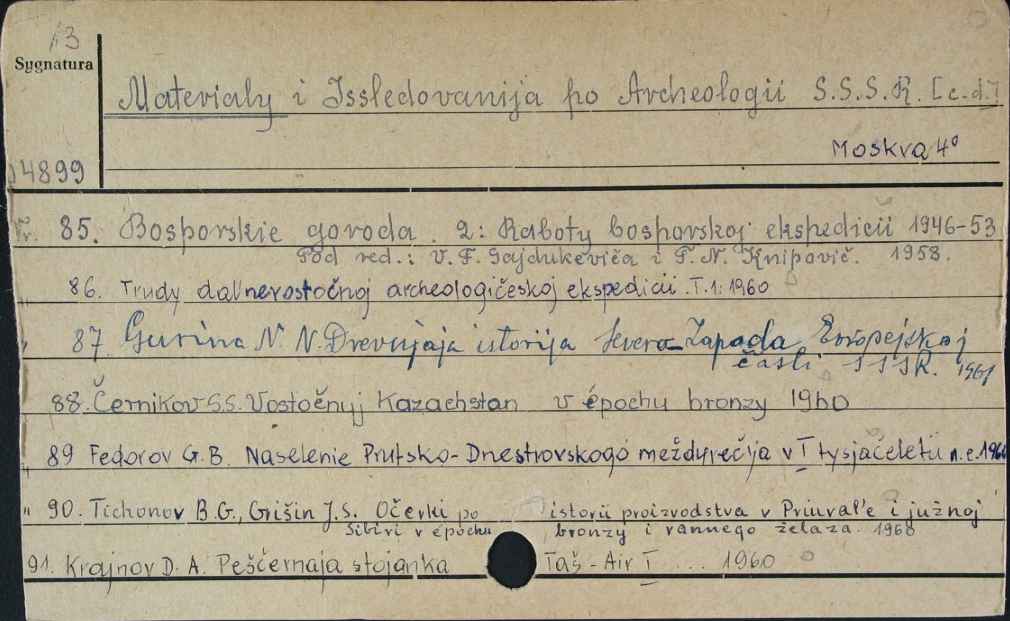 13
Sygnatura
Materialy i Issledovanija po Archeologii S.S.S.R. [c.d.]
Moskva 4°
14899
Nr. 85. Bosporskie goroda. 2: Raboty bosporskoj ekspedicii 1946-53
Pod red.: V. F. Gajdukeviča i T. N. Knipovič. 1958.
86. Trudy dal'nevostočnoj archeologičeskoj ekspedicii. T.1: 1960
" 87. Gurina N. N. Drevnjaja istorija Severo-Zapada Evropejskoj
časti SSSR. 1961
88. Černikov S.S. Vostočnyj Kazachstan v épochu bronzy 1960
" 89 Fedorov G.B. Naselenie Prutsko-Dnestrovskogo meždurečija v I tysjačeletii n.e. 1960
" 90. Tichonov B.G., Grišin J.S. Očerki po istorii proizvodstva v Priural'e i južnoj
Sibiri v épochu bronzy i rannego železa. 1960
91. Krajnov D. A. Peščernaja stojanka Taš-Air I ... 1960